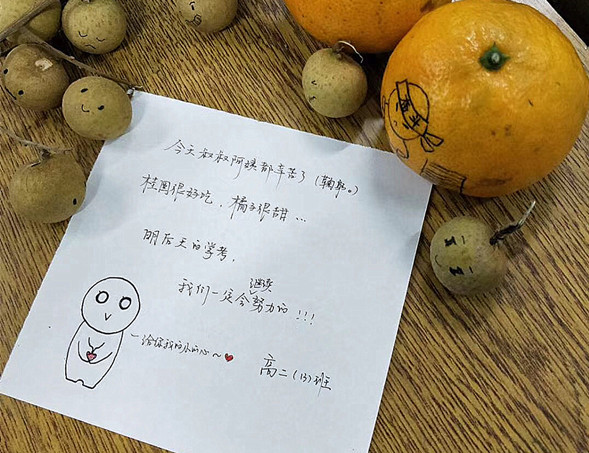 今天叔叔阿姨都辛苦了(鞠躬。)
桂圆很好吃，橘子很甜…
明后天的学考，
我们一定会继续努力的!!!
给你我的小的心~
高二(13)班